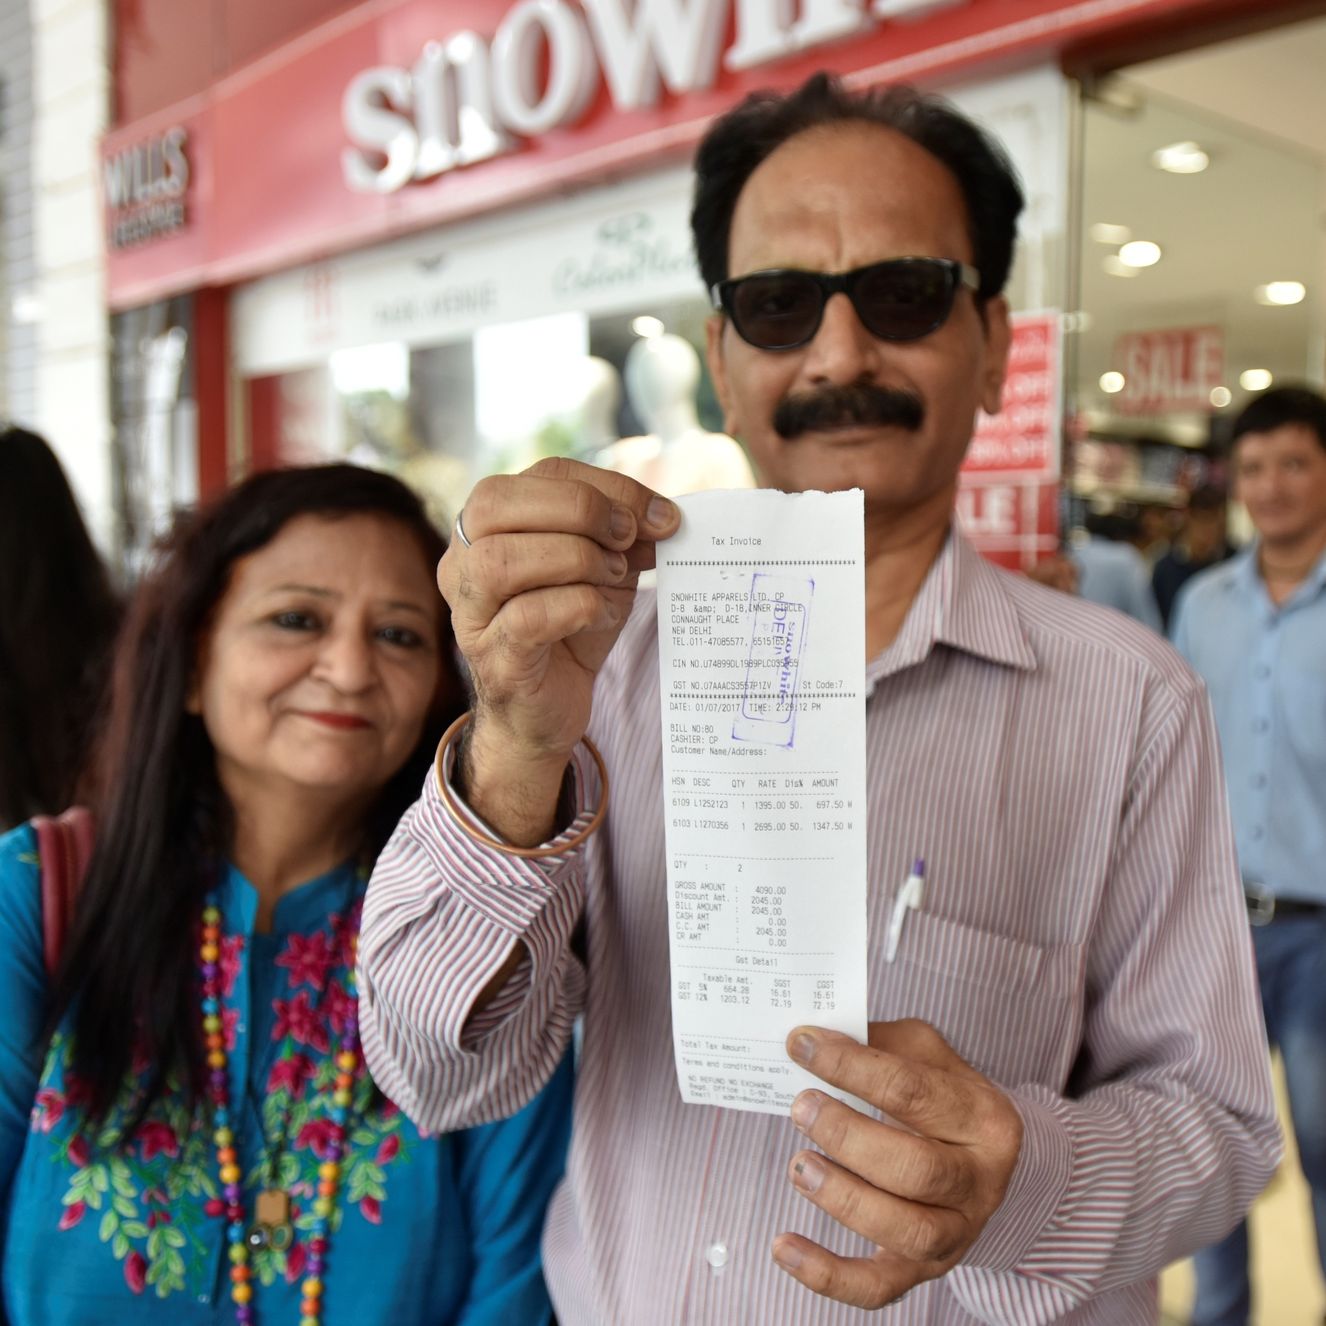 snowh
WILLS
LIFESTYLE
PARK AVENUE
SALE
Tax Invoice
SNOWHITE APPARELS LTD. CP
D-8 &amp; D-18,INNER CIRCLE
CONNAUGHT PLACE
NEW DELHI
TEL.011-47085577,
CIN
GST St Code:7
DATE: 01/07/2017 TIME: 2:29:12 PM
BILL NO:80
CASHIER: CP
Customer Name/Address:
HSN DESC QTY RATE Dis% AMOUNT
6109 L1252123 1 1395.00 50. 697.50 W
6103 L1270356 1 2695.00 50. 1347.50 W
QTY : 2
GROSS AMOUNT : 4090.00
Discount Amt. : 2045.00
BILL AMOUNT : 2045.00
CASH AMT : 0.00
C.C. AMT : 2045.00
CR AMT : 0.00
Gst Detail
Taxable Amt. SGST CGST
GST 5% 664.28 16.61 16.61
GST 12% 1203.12 72.19 72.19
Total Tax Amount:
Terms and conditions apply.
NO REFUND NO EXCHANGE
Regd. Office : C-93, South
Email :
snowhite